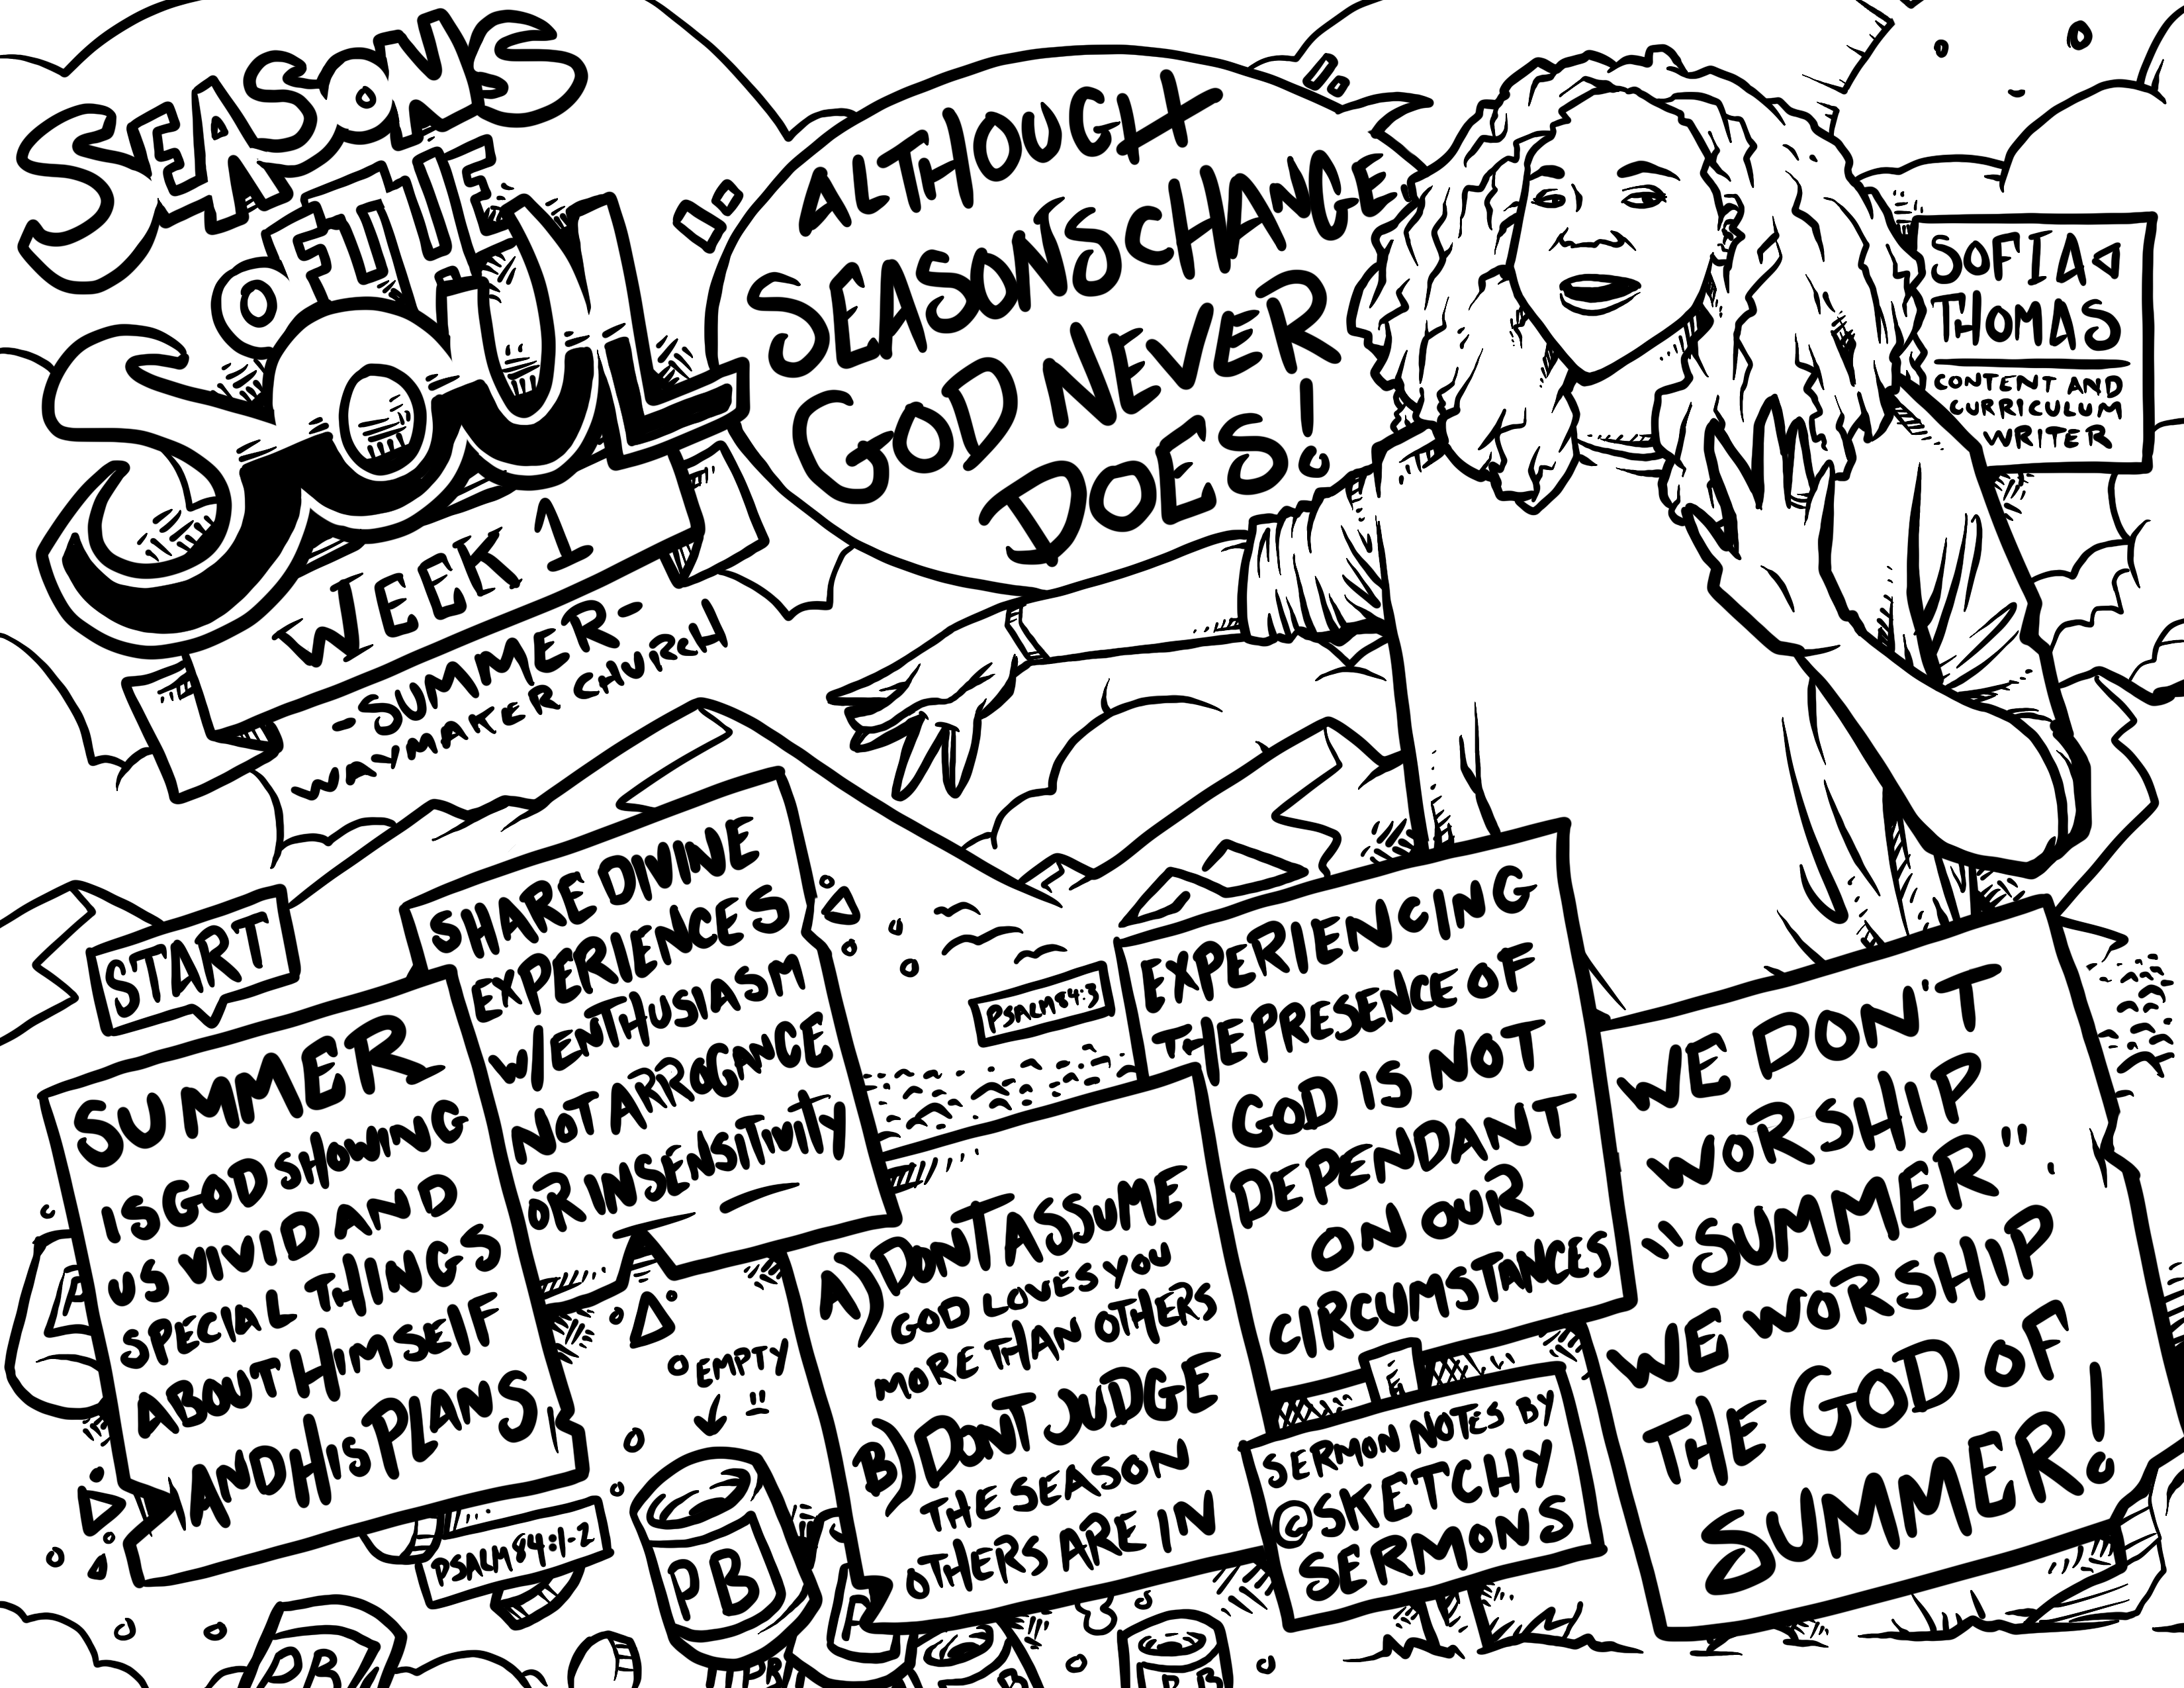 SEASONS
OF THE
SOUL
WEEK 1
-SUMMER-
WAYMAKER CHURCH
ALTHOUGH
SEASONS CHANGE,
GOD NEVER
DOES!
SOFIA
THOMAS
CONTENT AND
CURRICULUM
WRITER
START
SUMMER
IS GOD SHOWING
US VIVID AND
SPECIAL THINGS
ABOUT HIMSELF
AND HIS PLANS
PSALM 84:1-2
SHARE DIVINE
EXPERIENCES
W/ENTHUSIASM
NOT ARROGANCE
OR INSENSITIVITY
EMPTY
PB
PB
PB
PB
A) DON'T ASSUME
GOD LOVES YOU
MORE THAN OTHERS
B) DONT JUDGE
THE SEASON
OTHERS ARE IN
PSALM 84:3
EXPERIENCING
THE PRESENCE OF
GOD IS NOT
DEPENDANT
ON OUR
CIRCUMSTANCES
SERMON NOTES BY
@SKETCHY
SERMONS
WE DON'T
WORSHIP
"SUMMER"
WE WORSHIP
THE GOD OF
SUMMER!